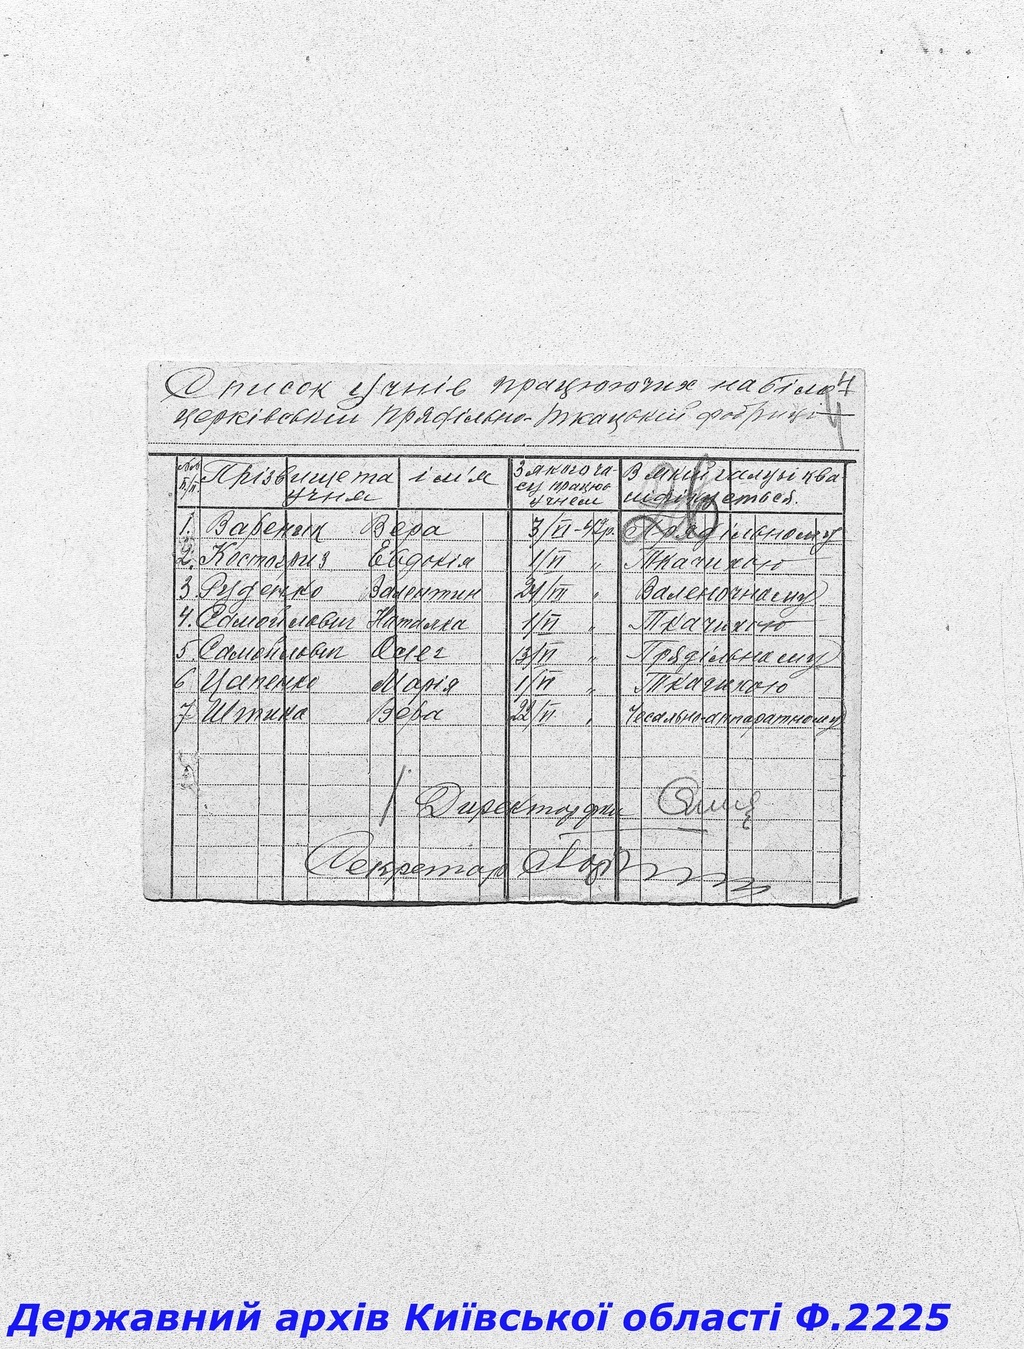 Список учнів працюючих на біло-
церківській Прядільно-Ткацькій фабриці
№№ п/п. Прізвище та ім'я учня З якого часу працює учнем В якій галузі кваліфікується.
1. Вареник Вера 3/VI-42р. Прядільному
2. Костогриз Евдокія 1/VI " Ткачихою
3 Руденко Валентин 24/III " Валеночному
4. Самойлович Наталка 1/VI " Ткачихою
5. Самойлович Олег 13/VI " Прядільному
6 Цапенко Марія 1/VI " Ткачихою
7. Штика Вера 22/VI " Чесально-аппаратному
Директор ф-ки
Секретар
Державний архів Київської області Ф.2225